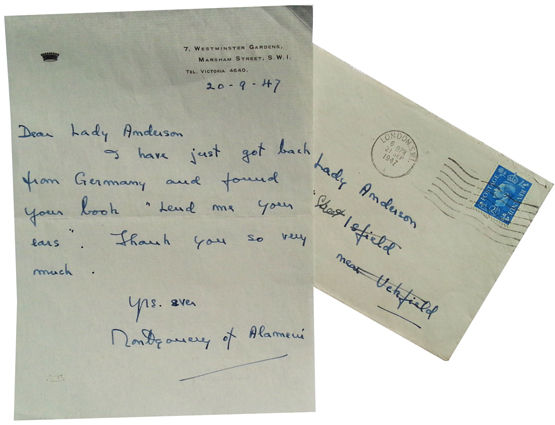 7, Westminster Gardens,
Marsham Street, S.W.1.
Tel. Victoria 4640.
20-9-47
Dear Lady Anderson
I have just got back
from Germany and found
your book "Lend me your
ears". Thank you so very
much.
Yrs. ever
Montgomery of Alamein
LONDON S.W.1
21 SEP
1947
Lady Anderson
Isfield
near Uckfield